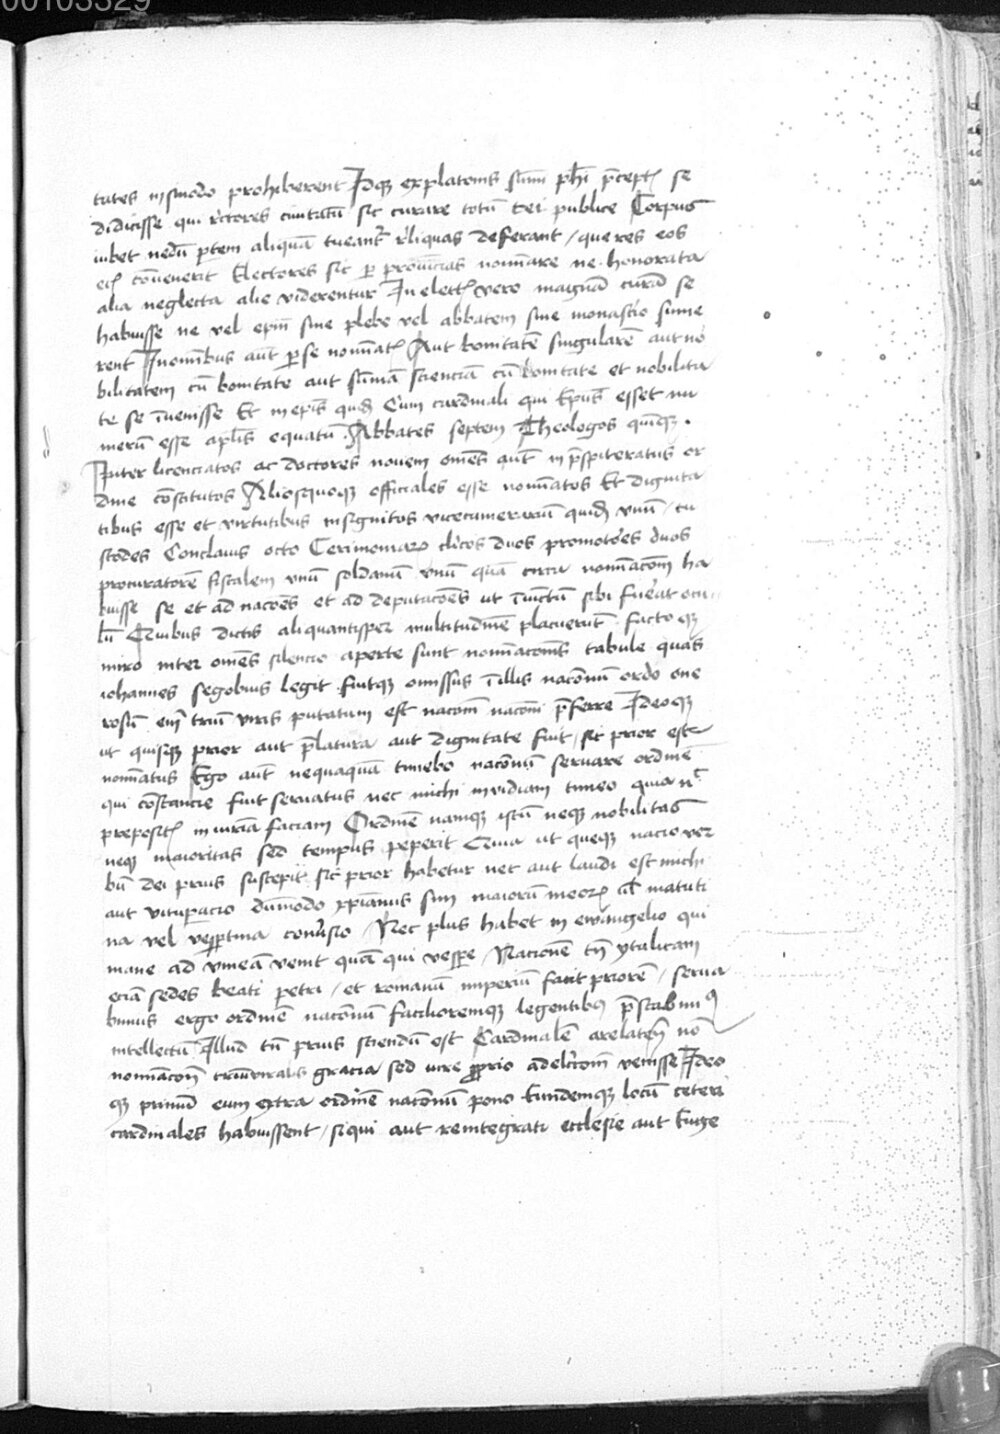 00103329
tates insinodo prohiberent Idq; ex platonis sūmi phī p̄ceptꝭ se
didicisse qui rectores ciuitatū sic curare totū rei publice Corpus
iubet nedū ꝑtem aliquā tueant᷑ reliquas deserant / que res eos
eciā cōuenerit Electores sic per prouīcias nomīare ne honorata
alia neglecta alie viderentur In electꝭ vero magnā curā se
habuisse ne vel epīm sine plebe vel abbatem sine monastio sume
rent In omībus aut̄ ꝑ se nomīatꝭ Aut bonitatē singularē aut no
bilitatem cū bonitate aut sūmā scienciā cū bonitate et nobilita
te se īuenisse Et in epīs quidē Cum cardinali qui Epūs esset nu
merū esse aplīs equatū . Abbates septem Theologos quīq; .
Inter licenciatos ac doctores nouem omēs aut̄ in p̄spiteratus or
dine cōstitutos Aliosquoq; officiales esse nomīatos Et dignita
tibus esse et virtutibus insignitos vicecamerariū quidē vnū / cu
stodes Conclauis octo Cerimoniarꝝ cl̄icos duos promotores duos
procuratorē fiscalem vnū soldanū vnū quā circa nomīacōem ha
buisse se et ad nacōes et ad deputacōes ut īiūctū sibi fuerat ocu
lū Quibus dictis aliquantisper multitudinē placuerūt factoq;
miro inter omēs silencio aperte sunt nomīacōnis tabule quas
iohannes segobius legit fuitq; omissus ī illis nacōnū ordo one
rosū em̄ triū viris putatum est nacōm nacōni p̄ferre Ideoq;
ut quisq; prior aut p̄latura aut dignitate fuit / sic prior est
nomīatus Ego aut̄ nequaquā timebo nacōnū seruare ordinē
qui cōstancie fuit seruatus nec michi inuidiam timeo quia n̄
prepositꝭ iniuriā faciam Ordinē namq; istū neq; nobilitas
neq; maioritas sed tempus peperit Quia ut queq; nacio ver
bū dei prius suscepit sic prior habetur nec aut laudi est michi
aut vituperacio dūmodo xpīanus sim maiorū meorꝝ ul̄ matuti
na vel vespertina conūsio / Nec plus habet in ewangelio qui
mane ad vineā venit quā qui vespere / Nacionē tn̄ ytalicam
eciā sedes beati petri / et romanū imperiū facit priorē / serua
bimus ergo ordinē nacōnū facilioremq; legentibus p̄stabimꝰ
intellectū Illud tn̄ prius sciendū est Cardinalē arelateñ nō
nomīacōni triūuiralis gracia / sed iure ꝓprio ad elcc̄ionem venisse Ideo
q; primū eum extra ordinē nacōnū pono Eundemq; locū ceteri
cardinales habuissent / siqui aut reintegrati ecclesie aut Euge